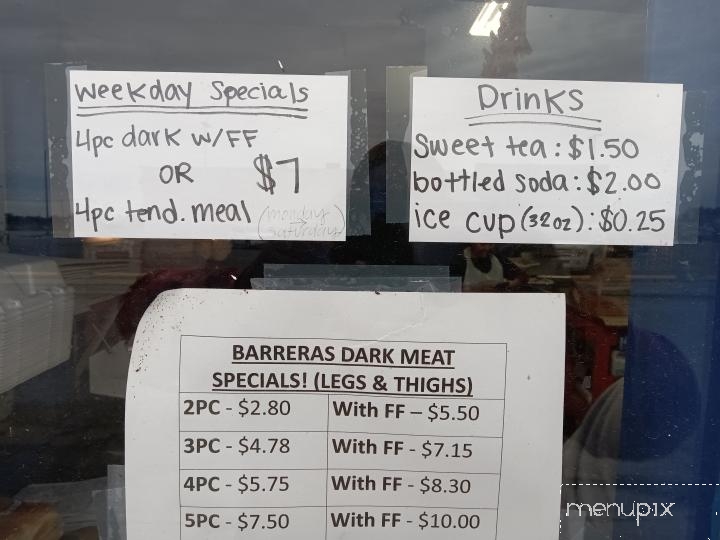 Weekday Specials
4pc dark w/FF
OR $7
4pc tend. meal (monday → saturday)
Drinks
Sweet tea: $1.50
bottled soda: $2.00
ice cup (32oz): $0.25
BARRERAS DARK MEAT
SPECIALS! (LEGS & THIGHS)
2PC - $2.80 With FF – $5.50
3PC - $4.78 With FF - $7.15
4PC - $5.75 With FF - $8.30
5PC - $7.50 With FF - $10.00
menupix